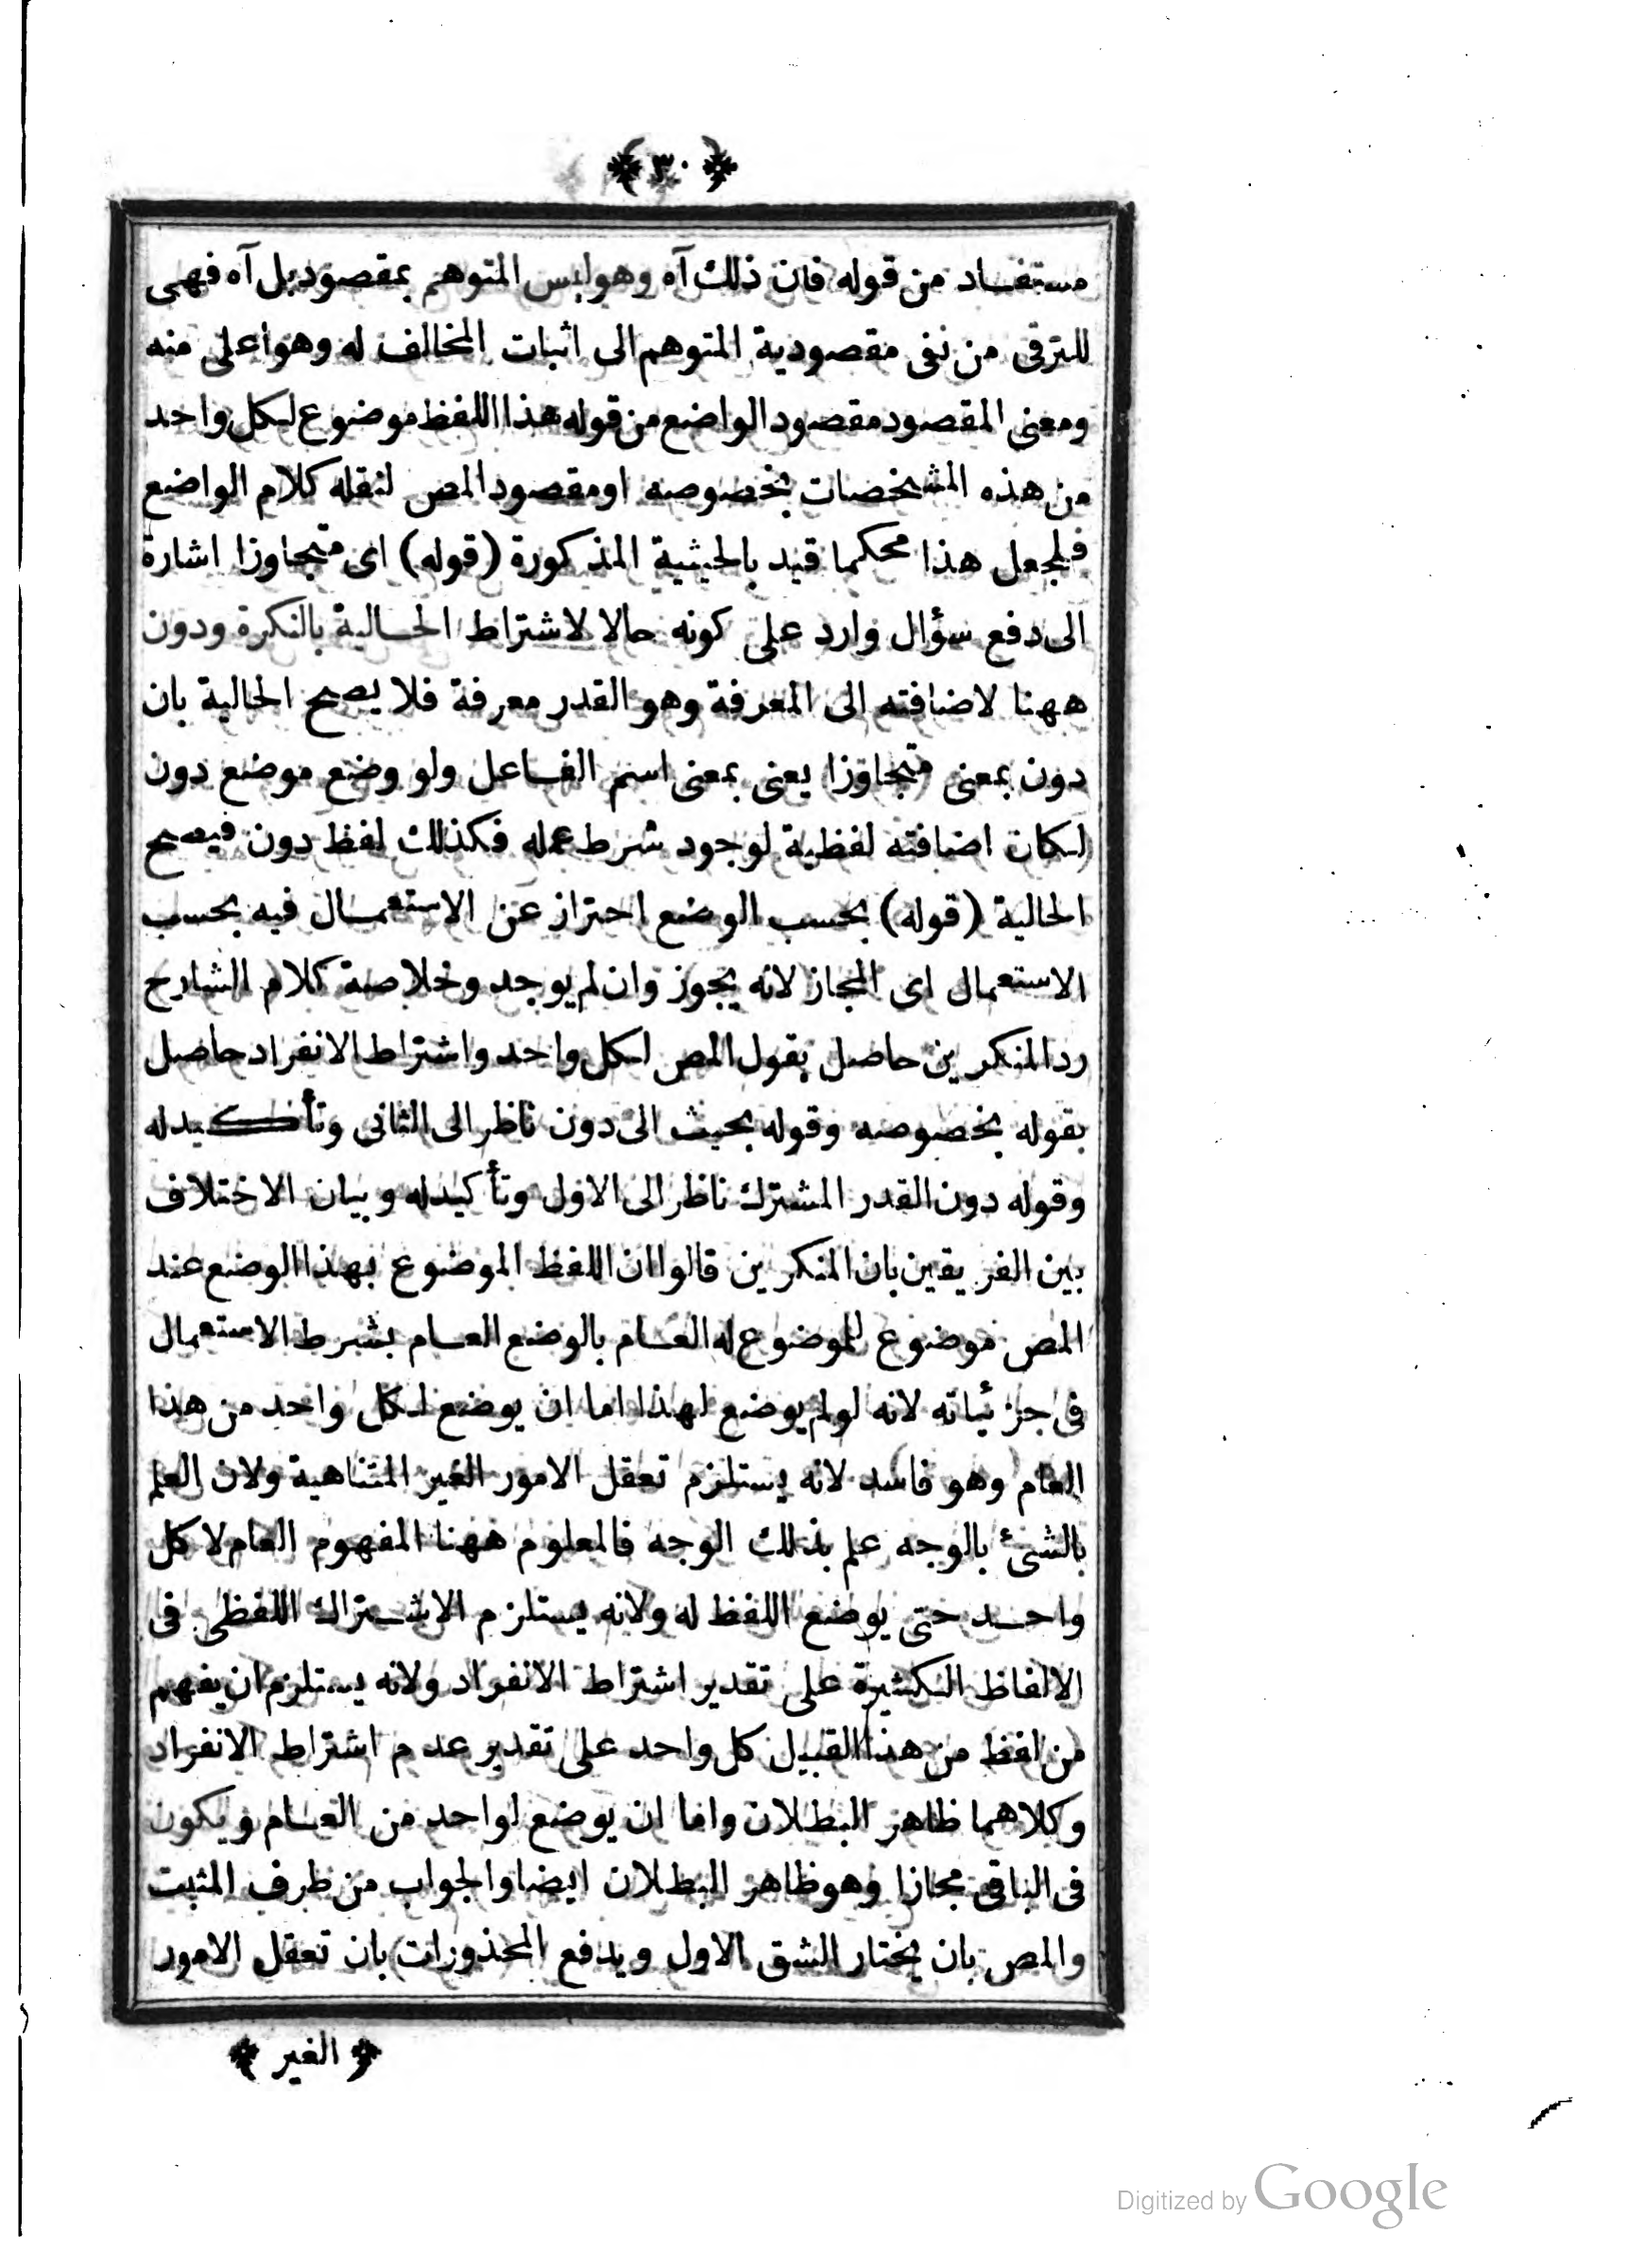 ﴿ ٣٠ ﴾
مستفاد من قوله فان ذلك آه وهو ليس المتوهم بمقصود بل آه فهى
للترقى من نفى مقصودية المتوهم الى اثبات المخالف له وهو اعلى منه
ومعنى المقصود مقصود الواضع من قوله هذا اللفظ موضوع لكل واحد
من هذه المشخصات بخصوصه او مقصود المص لنقله كلام الواضع
فلجعل هذا محكما قيد بالحيثية المذكورة (قوله) اى متجاوزا اشارة
الى دفع سؤال وارد على كونه حالا لاشتراط الحالية بالنكرة ودون
ههنا لاضافته الى المعرفة وهو القدر معرفة فلا يصح الحالية بان
دون بمعنى متجاوزا يعنى بمعنى اسم الفاعل ولو وضع موضع دون
لكان اضافته لفظية لوجود شرط عمله فكذلك لفظ دون فيصح
الحالية (قوله) بحسب الوضع احتراز عن الاستعمال فيه بحسب
الاستعمال اى المجاز لانه يجوز وان لم يوجد وخلاصة كلام الشارح
رد المنكرين حاصل بقول المص لكل واحد واشتراط الانفراد حاصل
بقوله بخصوصه وقوله بحيث الى دون ناظر الى الثانى وتأكيد له
وقوله دون القدر المشترك ناظر الى الاول وتأكيد له وبيان الاختلاف
بين الفريقين بان المنكرين قالوا ان اللفظ الموضوع بهذا الوضع عند
المص موضوع للموضوع له العام بالوضع العام بشرط الاستعمال
فى جزئياته لانه لو لم يوضع لهذا اما ان يوضع لكل واحد من هذا
العام وهو فاسد لانه يستلزم تعقل الامور الغير المتناهية ولان العلم
بالشئ بالوجه علم بذلك الوجه فالمعلوم ههنا المفهوم العام لا كل
واحد حتى يوضع اللفظ له ولانه يستلزم الاشتراك اللفظى فى
الالفاظ الكثيرة على تقدير اشتراط الانفراد ولانه يستلزم ان يفهم
من لفظ من هذا القبيل كل واحد على تقدير عدم اشتراط الانفراد
وكلاهما ظاهر البطلان واما ان يوضع لواحد من العام ويكون
فى الباقى مجازا وهو ظاهر البطلان ايضا والجواب من طرف المثبت
والمص بان يختار الشق الاول ويدفع المحذورات بان تعقل الامور
﴿ الغير ﴾
Digitized by Google